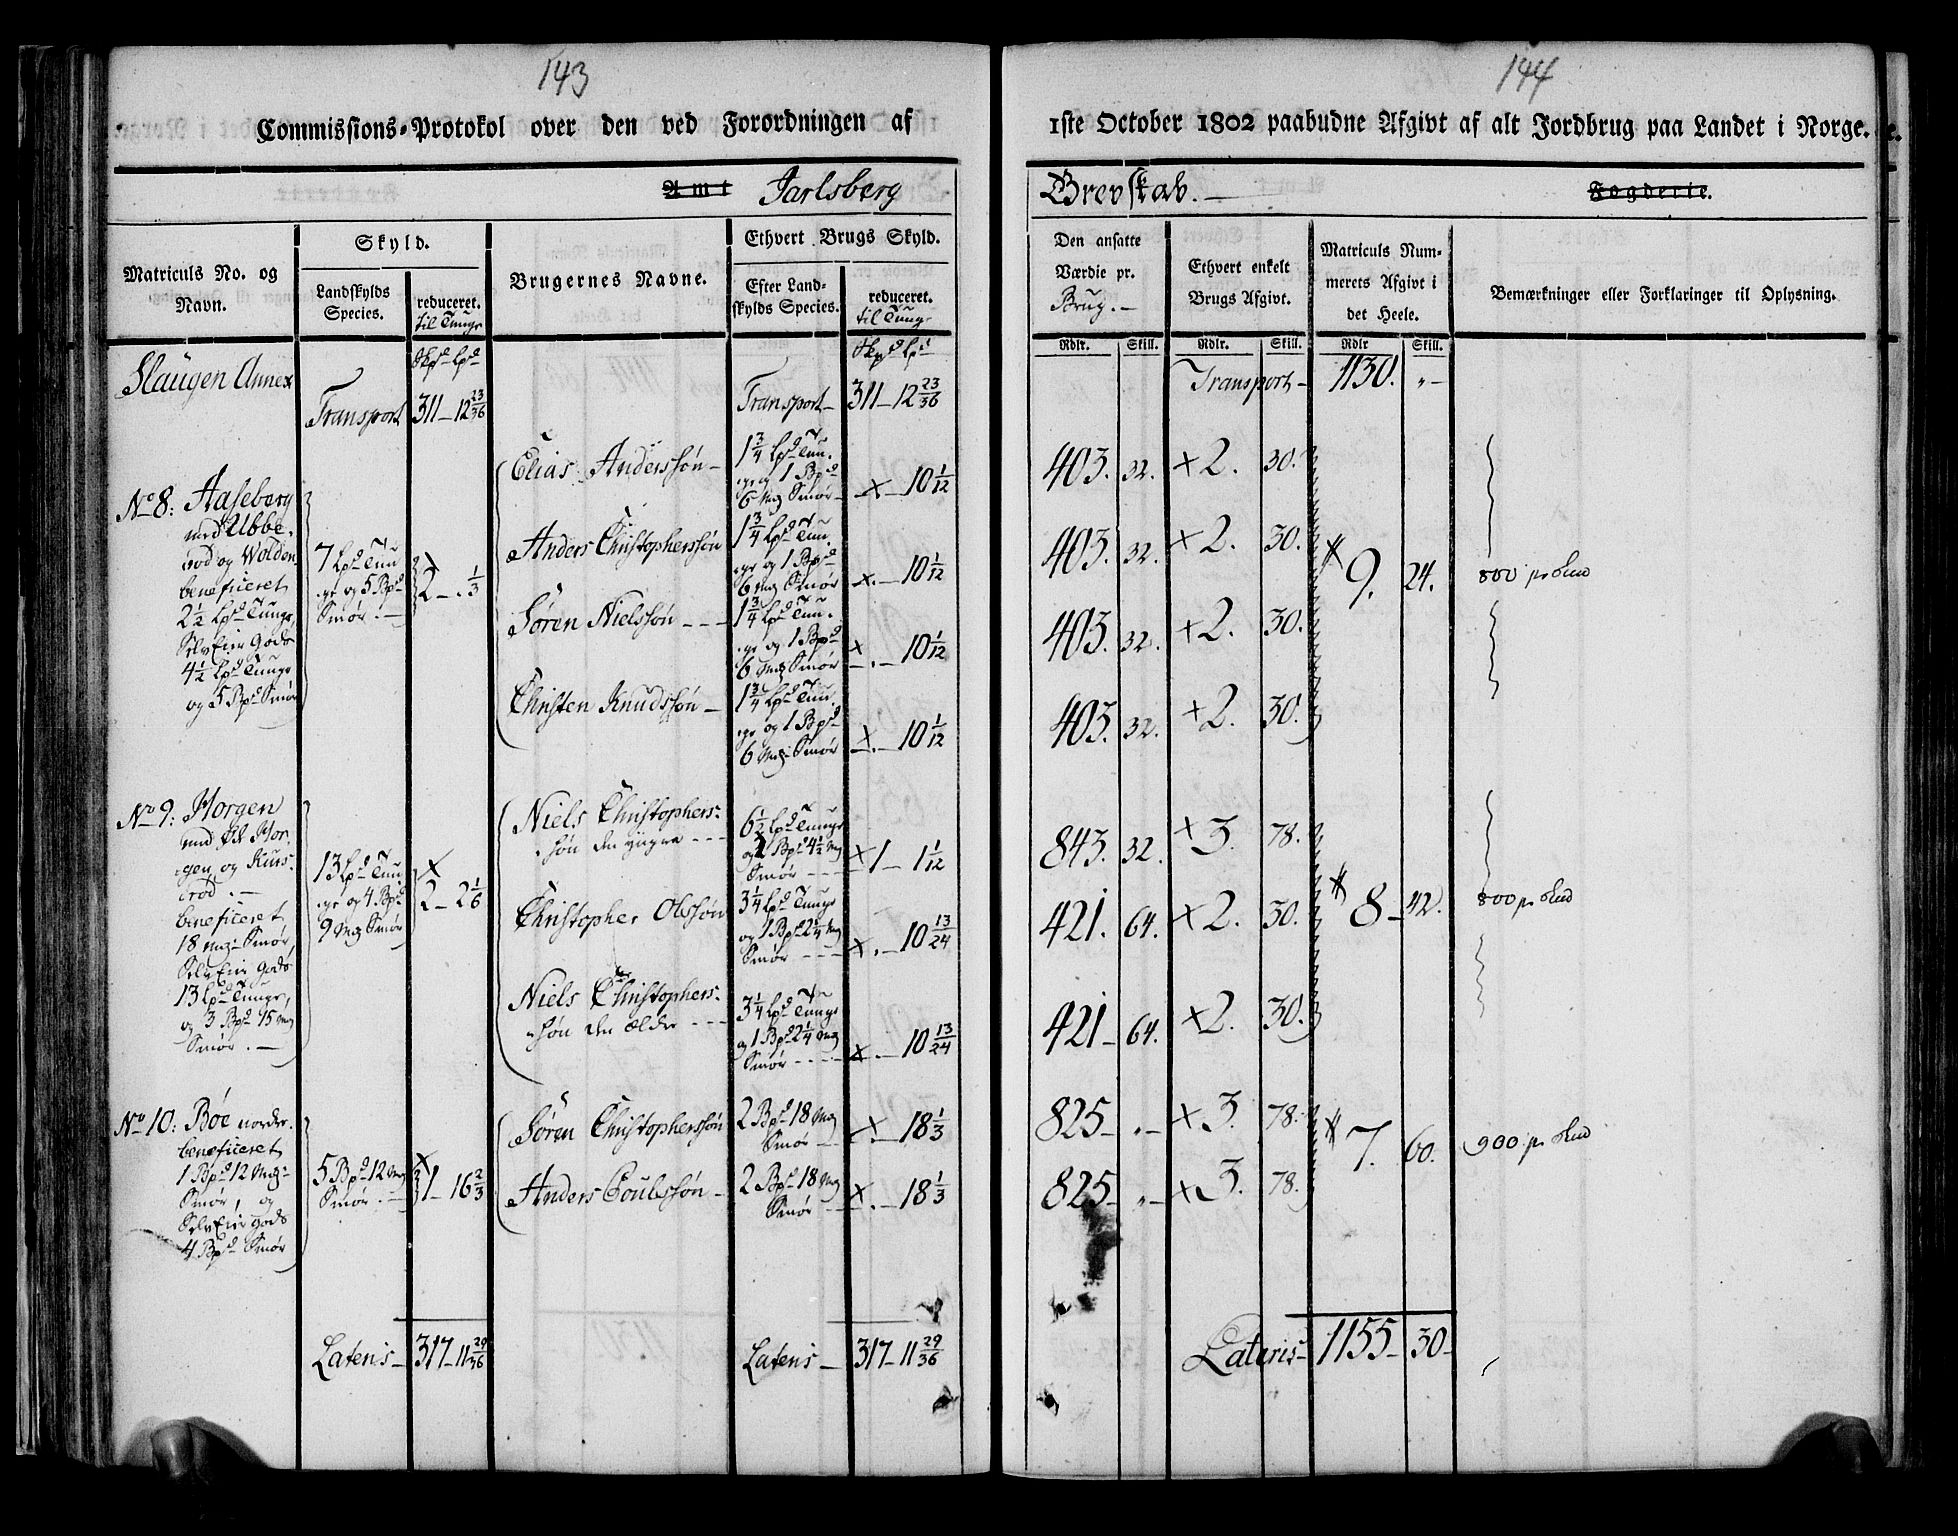 143
Commissions-Protokol over den ved Forordningen af
Amt Jarlsberg
Matriculs No. og Navn.
Skyld.
Landskylds Species.
reduceret.
til Tunge
Brugernes Navne.
Ethvert Brugs Skyld.
Efter Landskylds Species.
reduceret.
til Tunge
Slaugen Annex
Skpd Lpd
Transport 311 – 12 23/36
Transport – 311 – 12 23/36
No 8: Aaseberg
med Ubbe-
rod og Wolden
beneficeret
2 1/2 Lpd Tunge,
SelvEier Gods
4 1/2 Lpd Tunge
og 5 Bpd Smør
7 Lpd Tun
ge og 5 Bpd
Smør. –
2 – . 1/3
Elias Anderssøn –
1 3/4 Lpd Tun-
ge og 1 Bpd
6 Mrk Smør –
x – 10 1/12
Anders Christopherssøn
1 3/4 Lpd Tun-
ge og 1 Bpd
6 Mrk Smør
x. – 10 1/12
Søren Nielssøn - - -
1 3/4 Lpd Tun-
ge og 1 Bpd
6 Mrk Smør
x . – 10 1/12
Christen Knudssøn –
1 3/4 Lpd Tun-
ge og 1 Bpd
6 Mrk Smør
x . – 10 1/12
No 9: Horgen
med
gen, og
rød. –
beneficeret
18 Mrk Smør,
SelvEier Gods
13 Lpd Tunge,
og 3 Bpd 15 Mrk
Smør. –
13 Lpd Tun
ge og 4 Bpd
9 Mrk Smør
2 – 2 1/6
Niels Christophers-
søn den yngre - - -
6 1/2 Lpd Tunge
og 2 Bpd 4 1/2 Mrk
Smør - - -
x 1 – 1 1/12
Christopher Olssøn
3 1/4 Lpd Tunge
og 1 Bpd 2 1/4 Mrk
Smør - - -
x . – 10 13/24
Niels Christophers-
søn den ældre - - -
3 1/4 Lpd Tunge
og 1 Bpd 2 1/4 Mrk
Smør - - - -
x . – 10 13/24
No 10: Bøe nordre.
beneficeret
1 Bpd 12 Mrk
Smør, og
SelvEier Gods
4 Bpd Smør
5 Bpd 12 Mrk
Smør. –
1 – 16 2/3
Søren Christopherssøn
2 Bpd 18 Mrk
Smør –
x. – 18 1/3
Anders Poulssøn –
2 Bpd 18 Mrk
Smør –
x . – 18 1/3
Lateris – 317 – 11 29/36
Lateris – 317 – 11 29/36
144
1ste October 1802 paabudne Afgivt af alt Jordbrug paa Landet i Norge.
Grevskab. – Fogderie.
Den ansatte Værdie pr.
Brug. –
Ethvert enkelt Brugs Afgivt.
Matriculs Nummerets Afgivt i det Heele.
Bemærkninger eller Forklaringer til Oplysning.
Rdlr. Skill. Rdlr. Skill. Rdlr Skill.
Transport – 1130. „ –
403. 32. x 2. 30.
403. 32. x 2. 30.
x 9. 24.
800 pr Skd
403. 32. x 2. 30.
403. 32. x 2. 30.
843. 32. x 3. 78.
421. 64. x 2. 30.
x 8 – 42.
800 pr Skd
421 – 64. x 2. 30.
825 – „ – x 3. 78.
x 7. 60.
900 pr Skd
825 – „ – x 3. 78.
Lateris – 1155 – 30 –